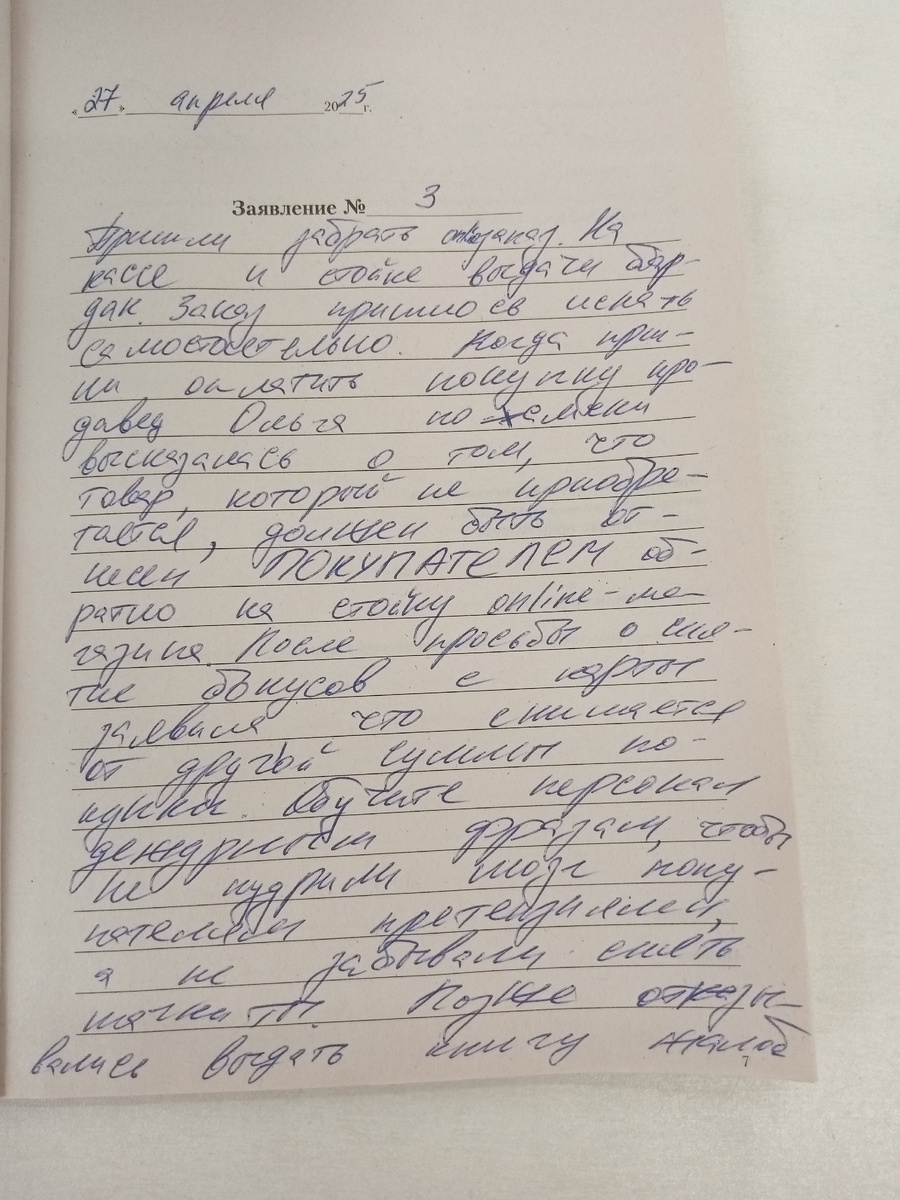 «27» апреля 2025 г.
Заявление № 3
Пришли забрать заказ. На
кассе и стойке выдачи бар-
дак. Заказ пришлось искать
самостоятельно. Когда приш-
ли оплатить покупку про-
давец Ольга по-хамски
высказалась о том, что
товар, который не приобре-
тается, должен быть от-
несен ПОКУПАТЕЛЕМ об-
ратно на стойку online-ма-
газина. После просьбы о сня-
тие бонусов с карты
заявила что снимается
от другой суммы по-
купки. Обучите персонал
дежурным фразам, чтобы
не пудрили мозг поку-
пателям претензиями,
а не забывали снять
магниты. Позже отказы-
вались выдать книгу жалоб
7